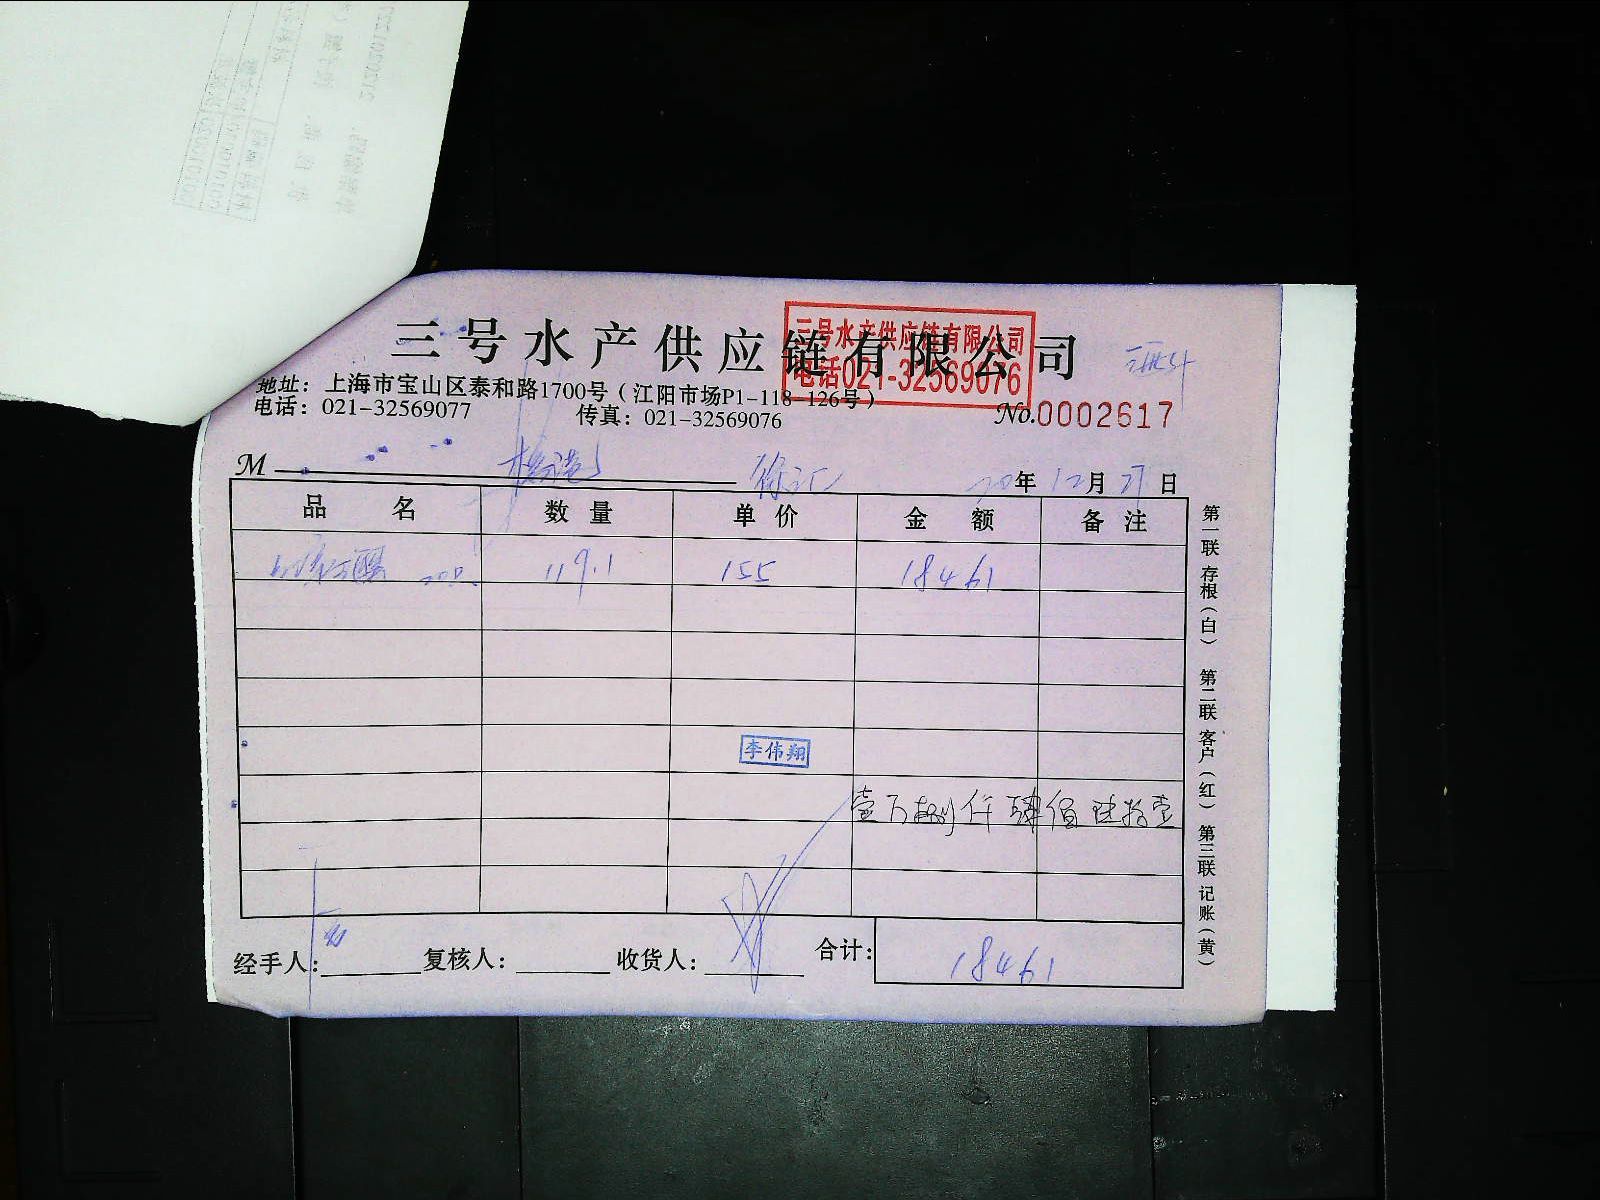 三号水产供应链有限公司
三号水产供应链有限公司
电话021-32569076
地址：上海市宝山区泰和路1700号（江阳市场P1-118-126号）
电话：021-32569077 传真：021-32569076
No.0002617
M 徐汇 20年12月27日
品名 数量 单价 金额 备注
119.1 155 18461
李伟翔
壹万捌仟肆佰陆拾壹
经手人： 复核人： 收货人： 合计：18461
第一联 存根（白） 第二联 客户（红） 第三联 记账（黄）